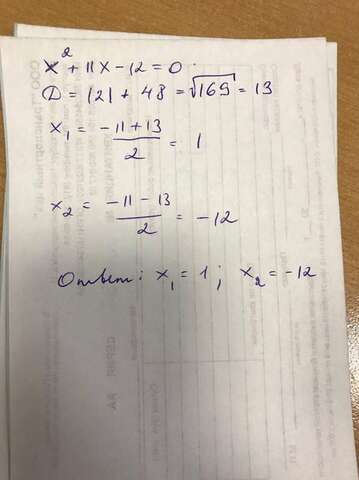 x² + 11x - 12 = 0
D = 121 + 48 = √169 = 13
x₁ = (-11 + 13)/2 = 1
x₂ = (-11 - 13)/2 = -12
Ответ: x₁ = 1; x₂ = -12